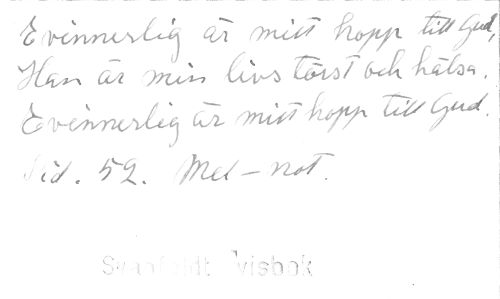 Evinnerlig är mitt hopp till Gud,
Han är min livs törst och hälsa.
Evinnerlig är mitt hopp till Gud.
Sid. 52. Mel-not.
visbok